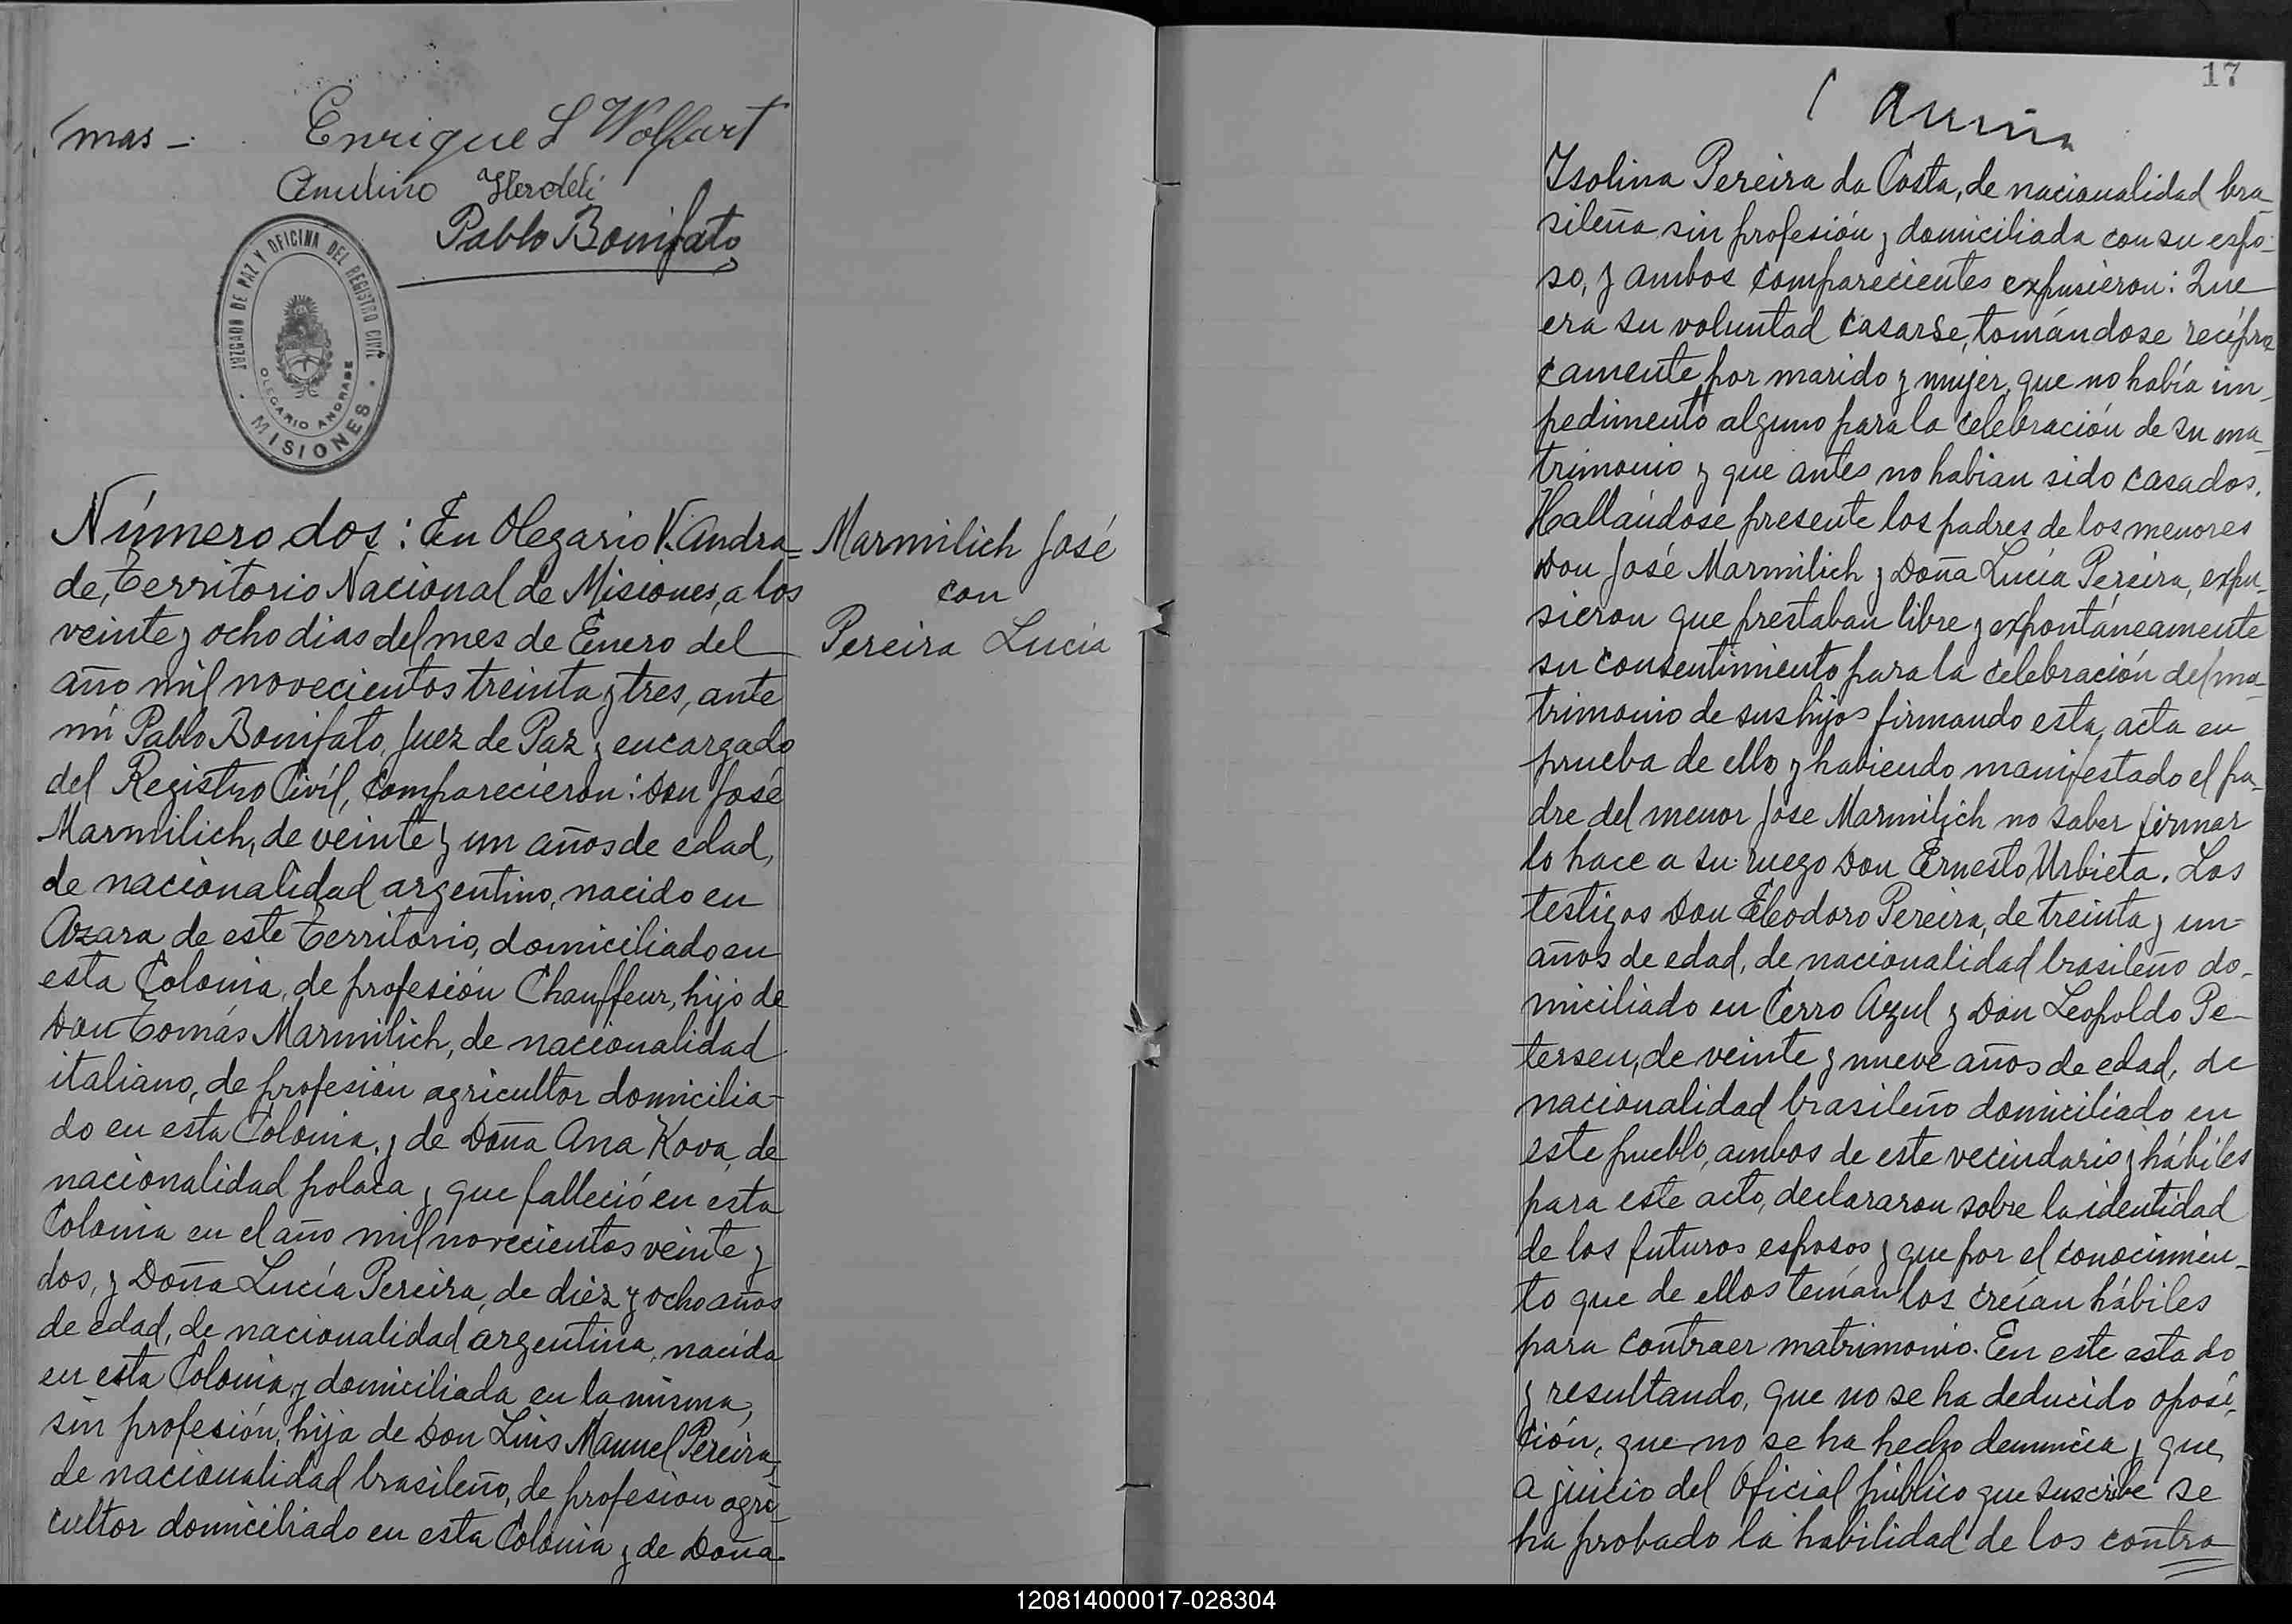 mas -
Enrique L Wolfart
Pablo Bonifato
JUZGADO DE PAZ Y OFICINA DEL REGISTRO CIVIL
OLEGARIO ANDRADE
MISIONES
Número dos: En Olegario V. Andra=
de, Territorio Nacional de Misiones, a los
veinte y ocho dias del mes de Enero del
año mil novecientos treinta y tres, ante
mi Pablo Bonifato, Juez de Paz y encargado
del Registro Civíl, comparecieron: Don José
Marmilich, de veinte y un años de edad,
de nacionalidad argentino, nacido en
Azara de este territorio, domiciliado en
esta Colonia, de profesión Chauffeur, hijo de
Don Tomás Marmilich, de nacionalidad
italiano, de profesión agricultor domicilia-
do en esta Colonia, y de Doña Ana Kova, de
nacionalidad polaca y que falleció en esta
Colonia en el año mil novecientos veinte y
dos, y Doña Lucía Pereira, de diéz y ocho años
de edad, de nacionalidad argentina, nacida
en esta Colonia y domiciliada en la misma,
sin profesión, hija de Don Luis Manuel Pereira,
de nacionalidad brasileño, de profesión agri-
cultor domiciliado en esta Colonia y de Doña
Marmilich José
con
Pereira Lucia
17
Isolina Pereira da Costa, de nacionalidad bra-
sileña sin profesión y domiciliada con su espo-
so, y ambos comparecientes expusieron: Que
era su voluntad casarse, tomándose recípro
camente por marido y mujer, que no había im-
pedimento alguno para la celebración de su ma-
trimonio y que antes no habian sido casados.
Hallándose presente los padres de los menores
Don José Marmilich y Doña Lucía Pereira, expu-
sieron que prestaban libre y expontáneamente
su consentimiento para la celebración del ma-
trimonio de sus hijos firmando esta acta en
prueba de ello y habiendo manifestado el pa-
dre del menor José Marmilich no saber firmar
lo hace a su ruego Don Ernesto Urbieta. Los
testigos Don Eleodoro Pereira, de treinta y un
años de edad, de nacionalidad brasileño do-
miciliado en Cerro Azul y Don Leopoldo Pe-
tersen, de veinte y nueve años de edad, de
nacionalidad brasileño domiciliado en
este pueblo, ambos de este vecindario y hábiles
para este acto, declararon sobre la identidad
de los futuros esposos y que por el conocimien-
to que de ellos tenían los creían hábiles
para contraer matrimonio. En este estado
y resultando, que no se ha deducido oposi-
ción, que no se ha hecho denuncia y que,
a juicio del Oficial público que suscribe se
ha probado la habilidad de los contra
120814000017-028304